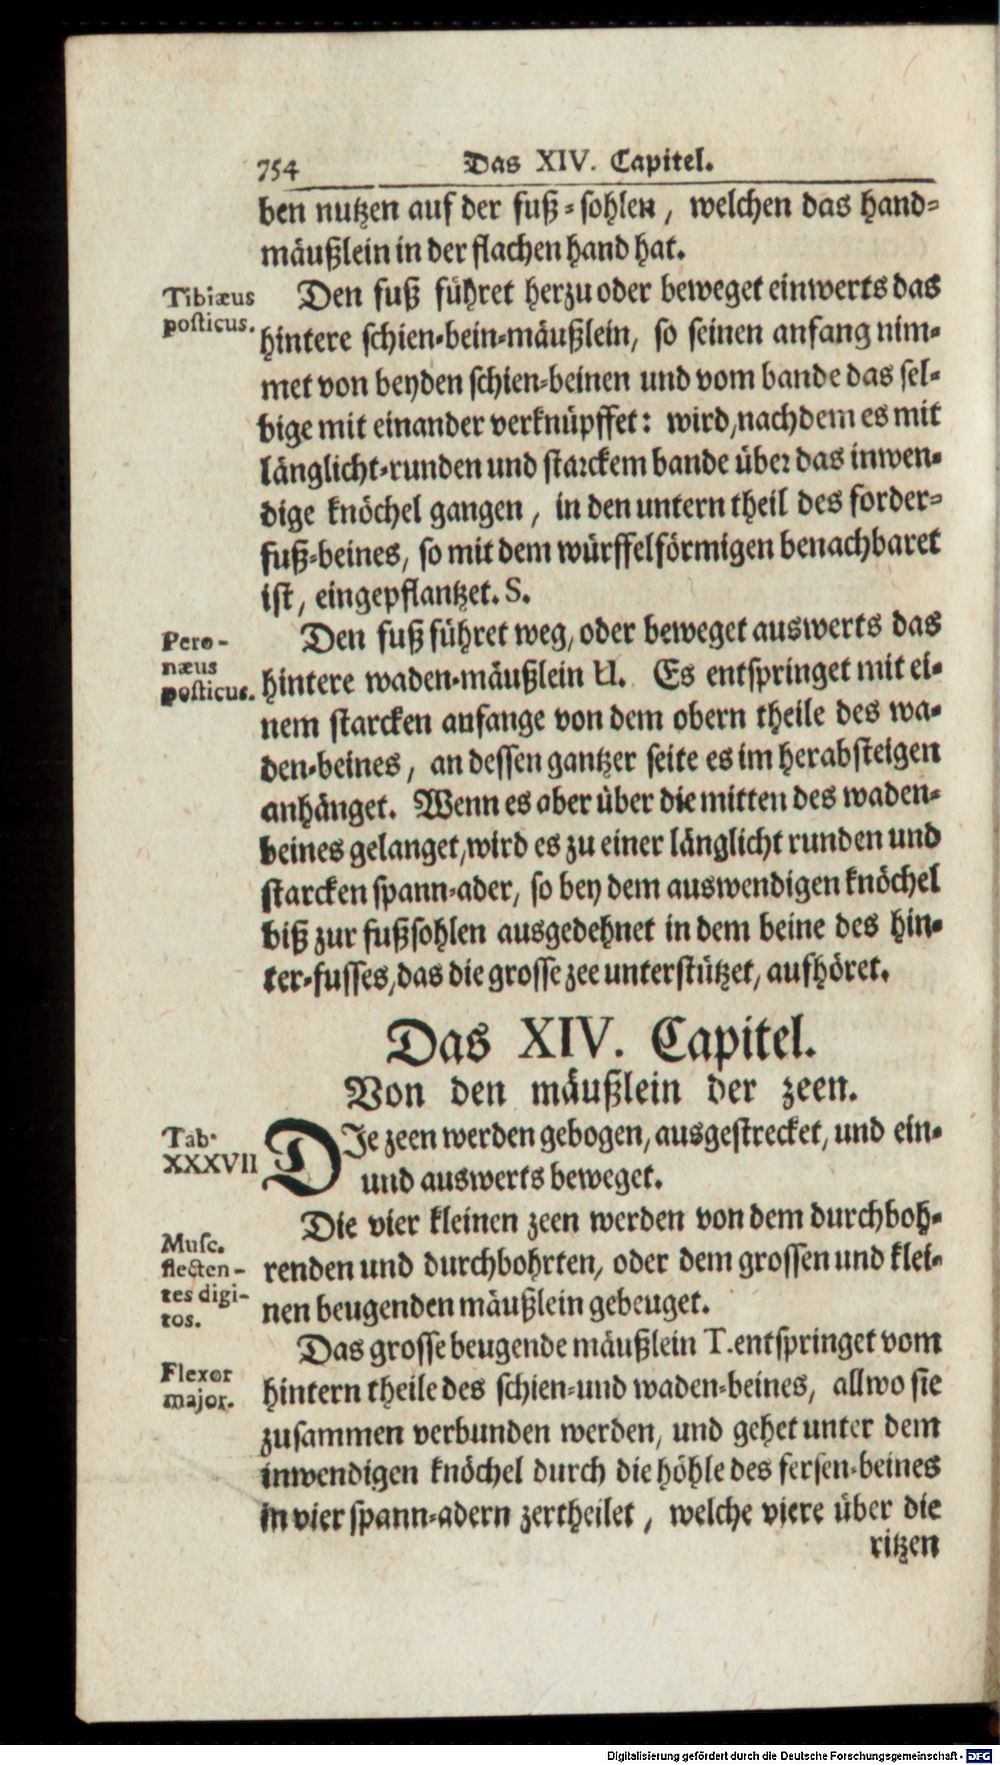 754 Das XIV. Capitel.
ben nutzen auf der fuß-sohlen, welchen das hand-
mäußlein in der flachen hand hat.
Tibiæus
posticus.
Den fuß führet herzu oder beweget einwerts das
hintere schien-bein-mäußlein, so seinen anfang nim-
met von beyden schien-beinen und vom bande das sel-
bige mit einander verknüpffet: wird, nachdem es mit
länglicht-runden und starckem bande über das inwen-
dige knöchel gangen, in den untern theil des forder-
fuß-beines, so mit dem würffelförmigen benachbaret
ist, eingepflantzet. S.
Pero-
næus
posticus.
Den fuß führet weg, oder beweget auswerts das
hintere waden-mäußlein U. Es entspringet mit ei-
nem starcken anfange von dem obern theile des wa-
den-beines, an dessen gantzer seite es im herabsteigen
anhänget. Wenn es aber über die mitten des waden-
beines gelanget, wird es zu einer länglicht runden und
starcken spann-ader, so bey dem auswendigen knöchel
biß zur fußsohlen ausgedehnet in dem beine des hin-
ter-fusses, das die grosse zee unterstützet, aufhöret.
Das XIV. Capitel.
Von den mäußlein der zeen.
Tab.
XXXVII
DIe zeen werden gebogen, ausgestrecket, und ein-
und auswerts beweget.
Musc.
flecten-
tes digi-
tos.
Die vier kleinen zeen werden von dem durchboh-
renden und durchbohrten, oder dem grossen und klei-
nen beugenden mäußlein gebeuget.
Flexor
major.
Das grosse beugende mäußlein T. entspringet vom
hintern theile des schien- und waden-beines, allwo sie
zusammen verbunden werden, und gehet unter dem
inwendigen knöchel durch die höhle des fersen-beines
in vier spann-adern zertheilet, welche viere über die
ritzen
Digitalisierung gefördert durch die Deutsche Forschungsgemeinschaft - DFG